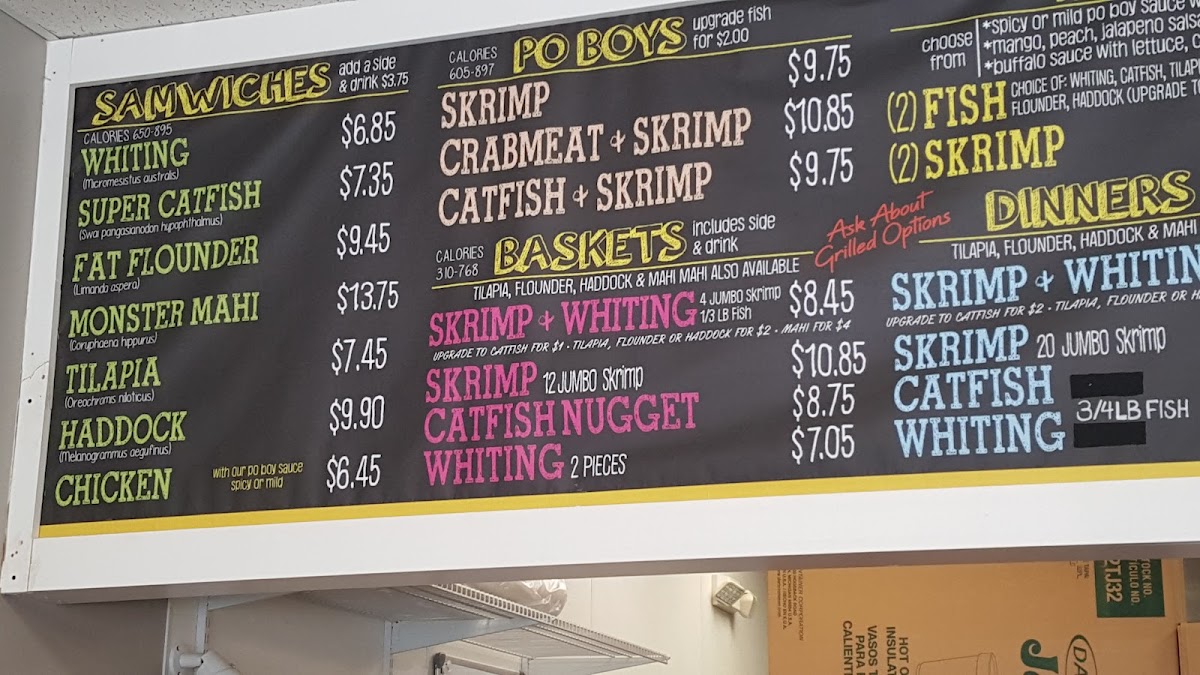 SAMWICHES add a side
& drink $3.75
CALORIES 650-895
WHITING $6.85
(Micromesistus australis)
SUPER CATFISH $7.35
(Swai pangasianodon hypophthalmus)
FAT FLOUNDER $9.45
(Limanda aspera)
MONSTER MAHI $13.75
(Coryphaena hippurus)
TILAPIA $7.45
(Oreochramis niloticus)
HADDOCK $9.90
(Melanogrammus aeglifinus)
CHICKEN with our po boy sauce $6.45
spicy or mild
CALORIES
605-897
PO BOYS upgrade fish
for $2.00
SKRIMP $9.75
CRABMEAT & SKRIMP $10.85
CATFISH & SKRIMP $9.75
CALORIES
310-768
BASKETS includes side
& drink
TILAPIA, FLOUNDER, HADDOCK & MAHI MAHI ALSO AVAILABLE
SKRIMP & WHITING 4 JUMBO Skrimp $8.45
1/3 LB Fish
UPGRADE TO CATFISH FOR $1 • TILAPIA, FLOUNDER OR HADDOCK FOR $2 • MAHI FOR $4
SKRIMP 12 JUMBO Skrimp $10.85
CATFISH NUGGET $8.75
WHITING 2 PIECES $7.05
Ask About
Grilled Options
choose
from
*spicy or mild po boy sauce
*mango, peach, jalapeno salsa
*buffalo sauce with lettuce,
(2) FISH CHOICE OF: WHITING, CATFISH,
FLOUNDER, HADDOCK (UPGRADE
(2) SKRIMP
DINNERS
TILAPIA, FLOUNDER, HADDOCK & MAHI
SKRIMP & WHITIN
UPGRADE TO CATFISH FOR $2 • TILAPIA, FLOUNDER OR
SKRIMP 20 JUMBO Skrimp
CATFISH
WHITING 3/4LB FISH
2TJ32
HOT
VASOS
PARA